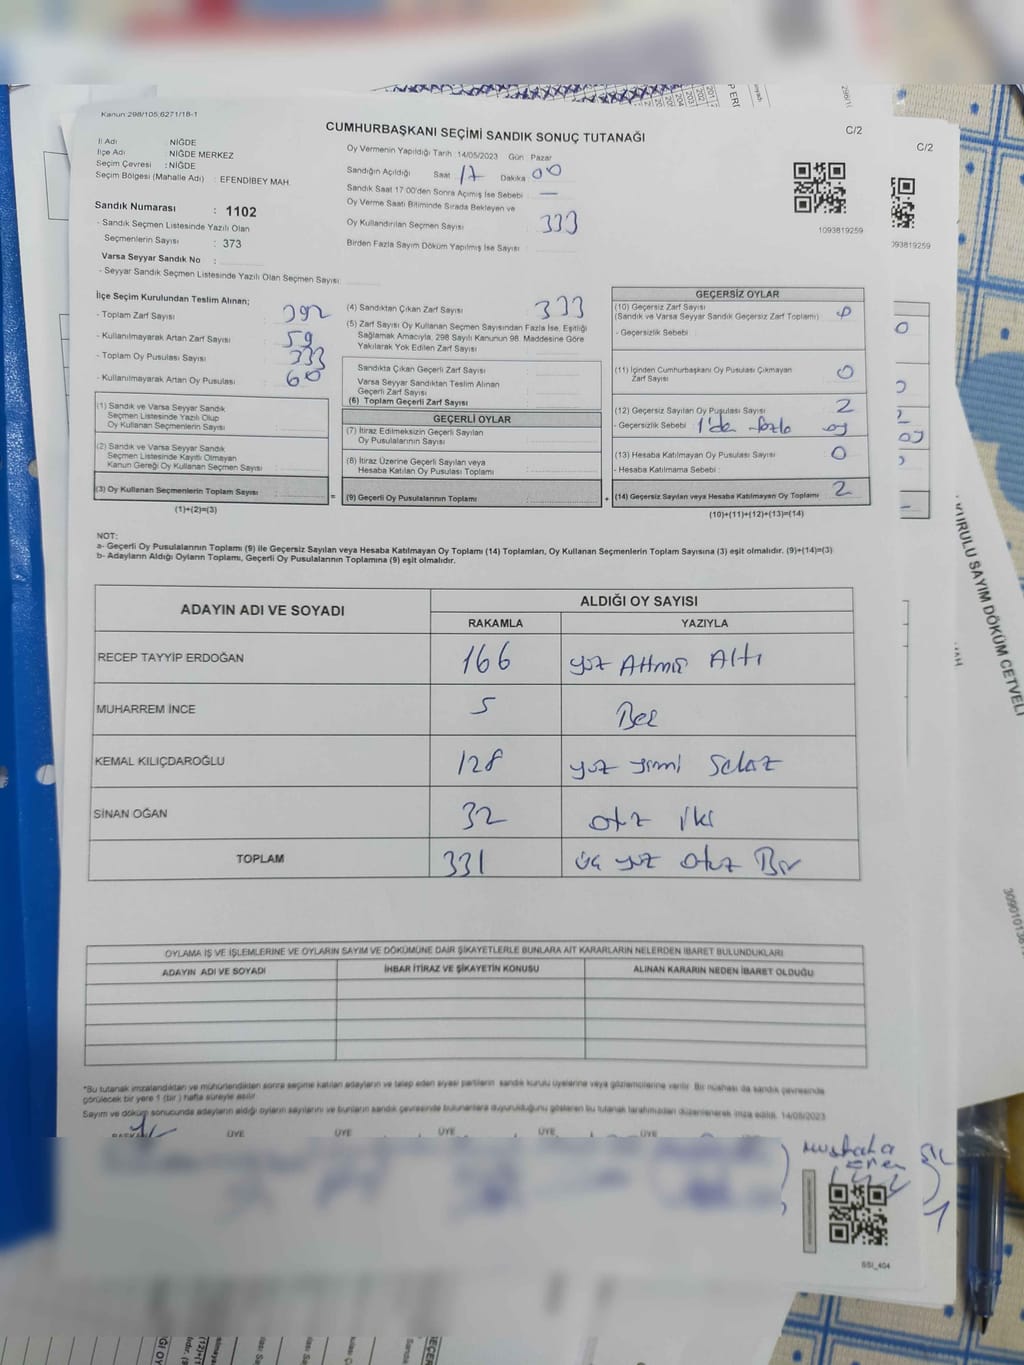 Kanun 298/105;6271/18-1
CUMHURBAŞKANI SEÇİMİ SANDIK SONUÇ TUTANAĞI
C/2
C/2
İl Adı NİĞDE
İlçe Adı NİĞDE MERKEZ
Seçim Çevresi : NİĞDE
Seçim Bölgesi (Mahalle Adı) : EFENDİBEY MAH.
Sandık Numarası : 1102
- Sandık Seçmen Listesinde Yazılı Olan
Seçmenlerin Sayısı : 373
Varsa Seyyar Sandık No :
- Seyyar Sandık Seçmen Listesinde Yazılı Olan Seçmen Sayısı
Oy Vermenin Yapıldığı Tarih 14/05/2023 Gün Pazar
Sandığın Açıldığı Saat 17 Dakika 00
Sandık Saat 17:00'den Sonra Açımış İse Sebebi —
Oy Verme Saati Bitiminde Sırada Bekleyen ve
Oy Kullandırılan Seçmen Sayısı 333
Birden Fazla Sayım Döküm Yapılmış İse Sayısı
1093819259
093819259
İlçe Seçim Kurulundan Teslim Alınan;
- Toplam Zarf Sayısı 392
- Kullanılmayarak Artan Zarf Sayısı 59
- Toplam Oy Pusulası Sayısı 333
- Kullanılmayarak Artan Oy Pusulası 60
(1) Sandık ve Varsa Seyyar Sandık
Seçmen Listesinde Yazılı Olup
Oy Kullanan Seçmenlerin Sayısı
(2) Sandık ve Varsa Seyyar Sandık
Seçmen Listesinde Kayıtlı Olmayan
Kanun Gereği Oy Kullanan Seçmen Sayısı
(3) Oy Kullanan Seçmenlerin Toplam Sayısı
(1)+(2)=(3)
=
(4) Sandıktan Çıkan Zarf Sayısı 333
(5) Zarf Sayısı Oy Kullanan Seçmen Sayısından Fazla İse, Eşitliği
Sağlamak Amacıyla, 298 Sayılı Kanunun 98. Maddesine Göre
Yakılarak Yok Edilen Zarf Sayısı
Sandıkta Çıkan Geçerli Zarf Sayısı
Varsa Seyyar Sandıktan Teslim Alınan
Geçerli Zarf Sayısı
(6) Toplam Geçerli Zarf Sayısı
GEÇERLİ OYLAR
(7) İtiraz Edilmeksizin Geçerli Sayılan
Oy Pusulalarının Sayısı
(8) İtiraz Üzerine Geçerli Sayılan veya
Hesaba Katılan Oy Pusulası Toplamı
(9) Geçerli Oy Pusulalarının Toplamı
+
GEÇERSİZ OYLAR
(10) Geçersiz Zarf Sayısı
(Sandık ve Varsa Seyyar Sandık Geçersiz Zarf Toplamı) 0
- Geçersizlik Sebebi :
(11) İçinden Cumhurbaşkanı Oy Pusulası Çıkmayan
Zarf Sayısı 0
(12) Geçersiz Sayılan Oy Pusulası Sayısı 2
- Geçersizlik Sebebi 1'den fazla oy
(13) Hesaba Katılmayan Oy Pusulası Sayısı 0
- Hesaba Katılmama Sebebi :
(14) Geçersiz Sayılan veya Hesaba Katılmayan Oy Toplamı 2
(10)+(11)+(12)+(13)=(14)
NOT:
a- Geçerli Oy Pusulalarının Toplamı (9) ile Geçersiz Sayılan veya Hesaba Katılmayan Oy Toplamı (14) Toplamları, Oy Kullanan Seçmenlerin Toplam Sayısına (3) eşit olmalıdır. (9)+(14)=(3)
b- Adayların Aldığı Oyların Toplamı, Geçerli Oy Pusulalarının Toplamına (9) eşit olmalıdır.
ADAYIN ADI VE SOYADI ALDIĞI OY SAYISI
RAKAMLA YAZIYLA
RECEP TAYYİP ERDOĞAN 166 yüz Atmış Altı
MUHARREM İNCE 5 Beş
KEMAL KILIÇDAROĞLU 128 yüz yirmi Sekiz
SİNAN OĞAN 32 otuz iki
TOPLAM 331 üç yüz otuz Bir
OYLAMA İŞ VE İŞLEMLERİNE VE OYLARIN SAYIM VE DÖKÜMÜNE DAİR ŞİKAYETLERLE BUNLARA AİT KARARLARIN NELERDEN İBARET BULUNDUKLARI
ADAYIN ADI VE SOYADI İHBAR İTİRAZ VE ŞİKAYETİN KONUSU ALINAN KARARIN NEDEN İBARET OLDUĞU
*Bu tutanak imzalandıktan ve mühürlendikten sonra seçime katılan adayların ve talep eden siyasi partilerin sandık kurulu üyelerine veya gözlemcilerine verilir. Bir nüshası da sandık çevresinde
görülecek bir yere 1 (bir) hafta süreyle asılır.
Sayım ve döküm sonucunda adayların aldığı oyların sayılarını ve bunların sandık çevresinde bulunanlara duyurulduğunu gösteren bu tutanak tarafımızdan düzenlenerek imza edildi. 14/05/2023
BAŞKAN ÜYE ÜYE ÜYE ÜYE ÜYE
Mustafa
Eren
SSI_404
KURULU SAYIM DÖKÜM CETVELİ